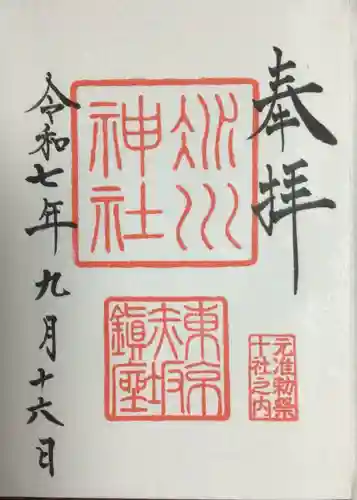 奉拝
氷川
神社
東京
赤坂
鎮座
元准勅祭
十社之内
令和七年九月十六日